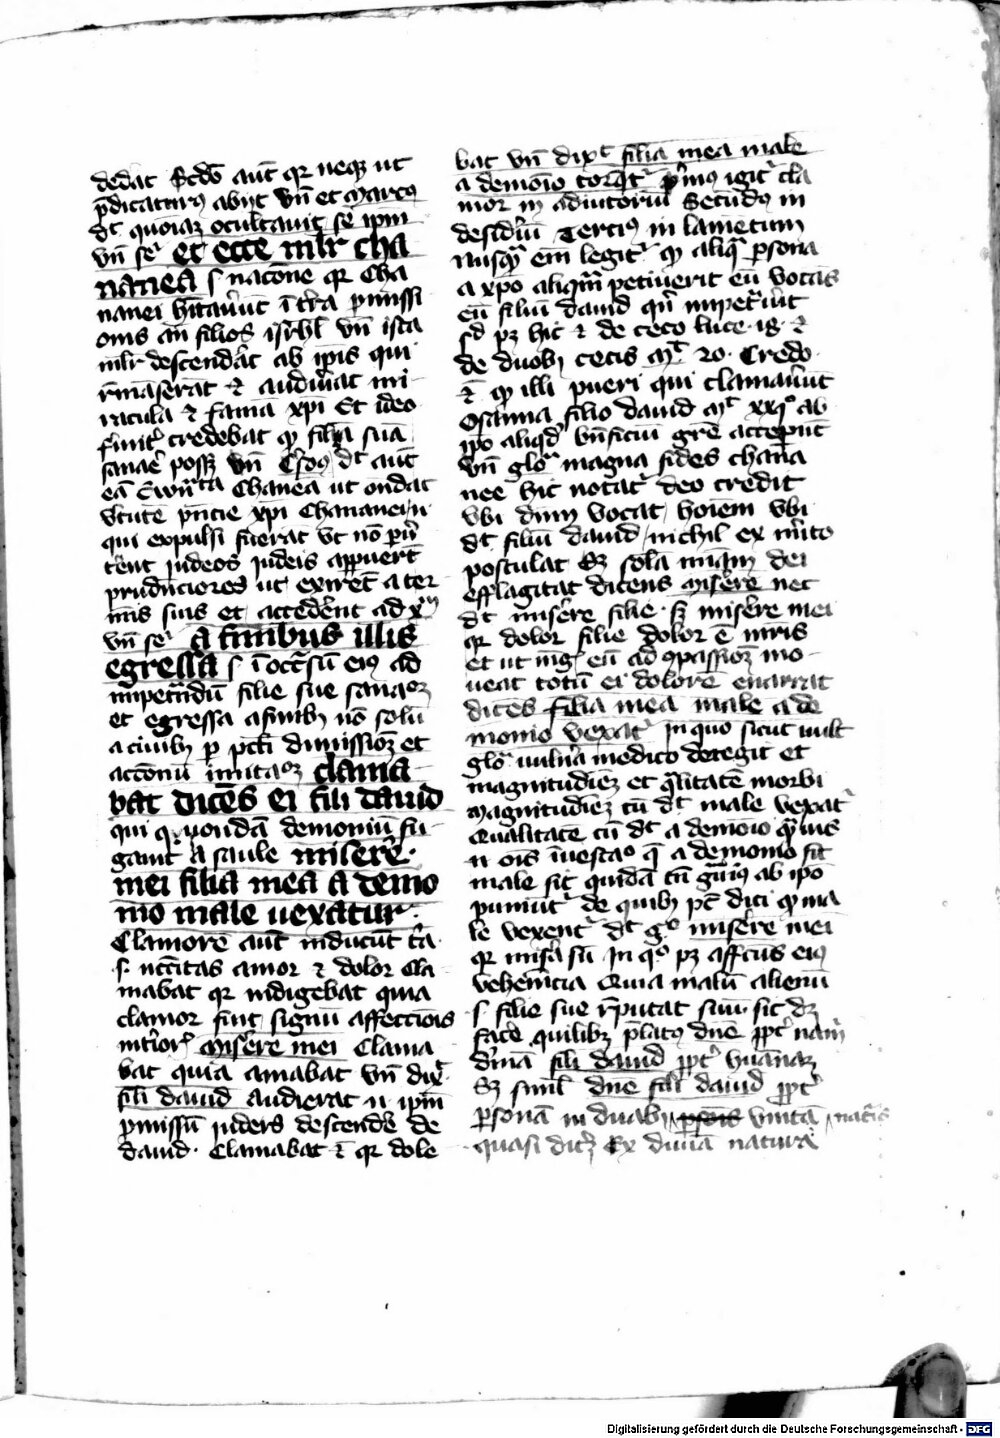 dedat Scdo aut qr neqz ut
pdicaturus abijt vn et Marcus
dt quoniaz ocultauit se ipm
vn seqr et ecce mlr cha
nanea s nacone qr Cha
nanei hitauut i tra pmissi
onis an filios isrhl vn ista
mlr descendat ab ipis qui
rmaserat et audiuat mi
racula et fama xpi Et ideo
firmit credebat qp filia sua
sanaei possz vn dt aut
ea Chanea ut ondat
vtute pncie xpi Chananei n
qui expulsi fuerat vt no puer
tent judeos judeis appuert
prudnciores ut exiret a ter
mis suis et accedent ad xm
vn seqr a finibus illis
egressa s i occsu eius ad
impetradu filie sue sanacoz
et egressa a finibz no solu
a ciuibz p pcti dimissioz et
acconu imitacoz clama
bat dices ei fili dauid
qui quonda demoniu fu
gauit a saule miserere
mei filia mea a demo
nio male uexatur
Clamore aut inducut tria
s nccitas amor et dolor Cla
mabat qr indigebat quia
clamor fuit signu affeccionis
interior Miserere mei Clama
bat quia amabat vn dix
fili dauid Audierat n ipm
pmissu judeis descende de
dauid Clamabat et qr dole
bat vn dixt filia mea male
a demonio torqt primus igit cla
mor in adiutoriu Secundus in
desideriu Tercius in lametum
Nusqua em legit qp aliqua psona
a xpo aliqm petiuerit eu vocas
eu filiu dauid qn impetriut
sd pz hic et de ceco luce 18 et
de duobz cecis mt 20 Credo
et qp illi pueri qui clamauut
Osanna filio dauid mt xxi ab
ipo aliqd bnficiu gre acceput
vn glo magna fides chana
nee hic notat deo credit
vbi dnm vocat hoiem vbi
dt filiu dauid nichil ex mito
postulat sz sola miam dei
efflagitat dicens Miserere nec
dt miserere filie sz miserere mei
qr dolor filie dolor e mris
et ut mag eu ad compassioz mo
ueat totu ei dolore enarrat
dices filia mea male a de
monio vexat In quo sicut uult
glo uulna medico detegit et
magnitudiez et qlitate morbi
Magnitudiez cu dt male vexat
Qualitate cu dt a demoio quis
n ois iuestao q a demonio fit
male sit quida tn ab ipo
puniut de quibz pt dici qp ma
le vexent dt go miserere mei
qr misa su In quo pz affcus eius
vehementia Quia malu alienu
s filie sue rputat suu sic dz
face quilibz platus dne ppt nam
diuina fili dauid ppt humanaz
Sz simul dne fili dauid ppt
psona in duabz psonis vnita naturis
quasi dicz Ex diuina natura
Digitalisierung gefördert durch die Deutsche Forschungsgemeinschaft - DFG